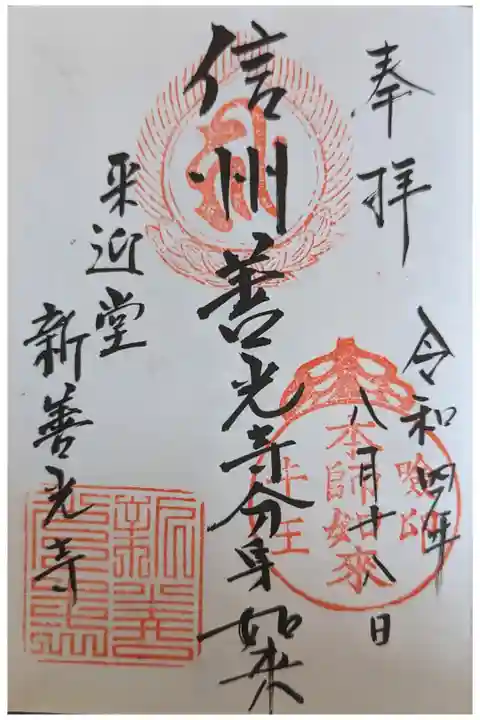 奉拝
令和四年
八月廿八日
信州善光寺分身如来
来迎堂
新善光寺
本師如來
牛王